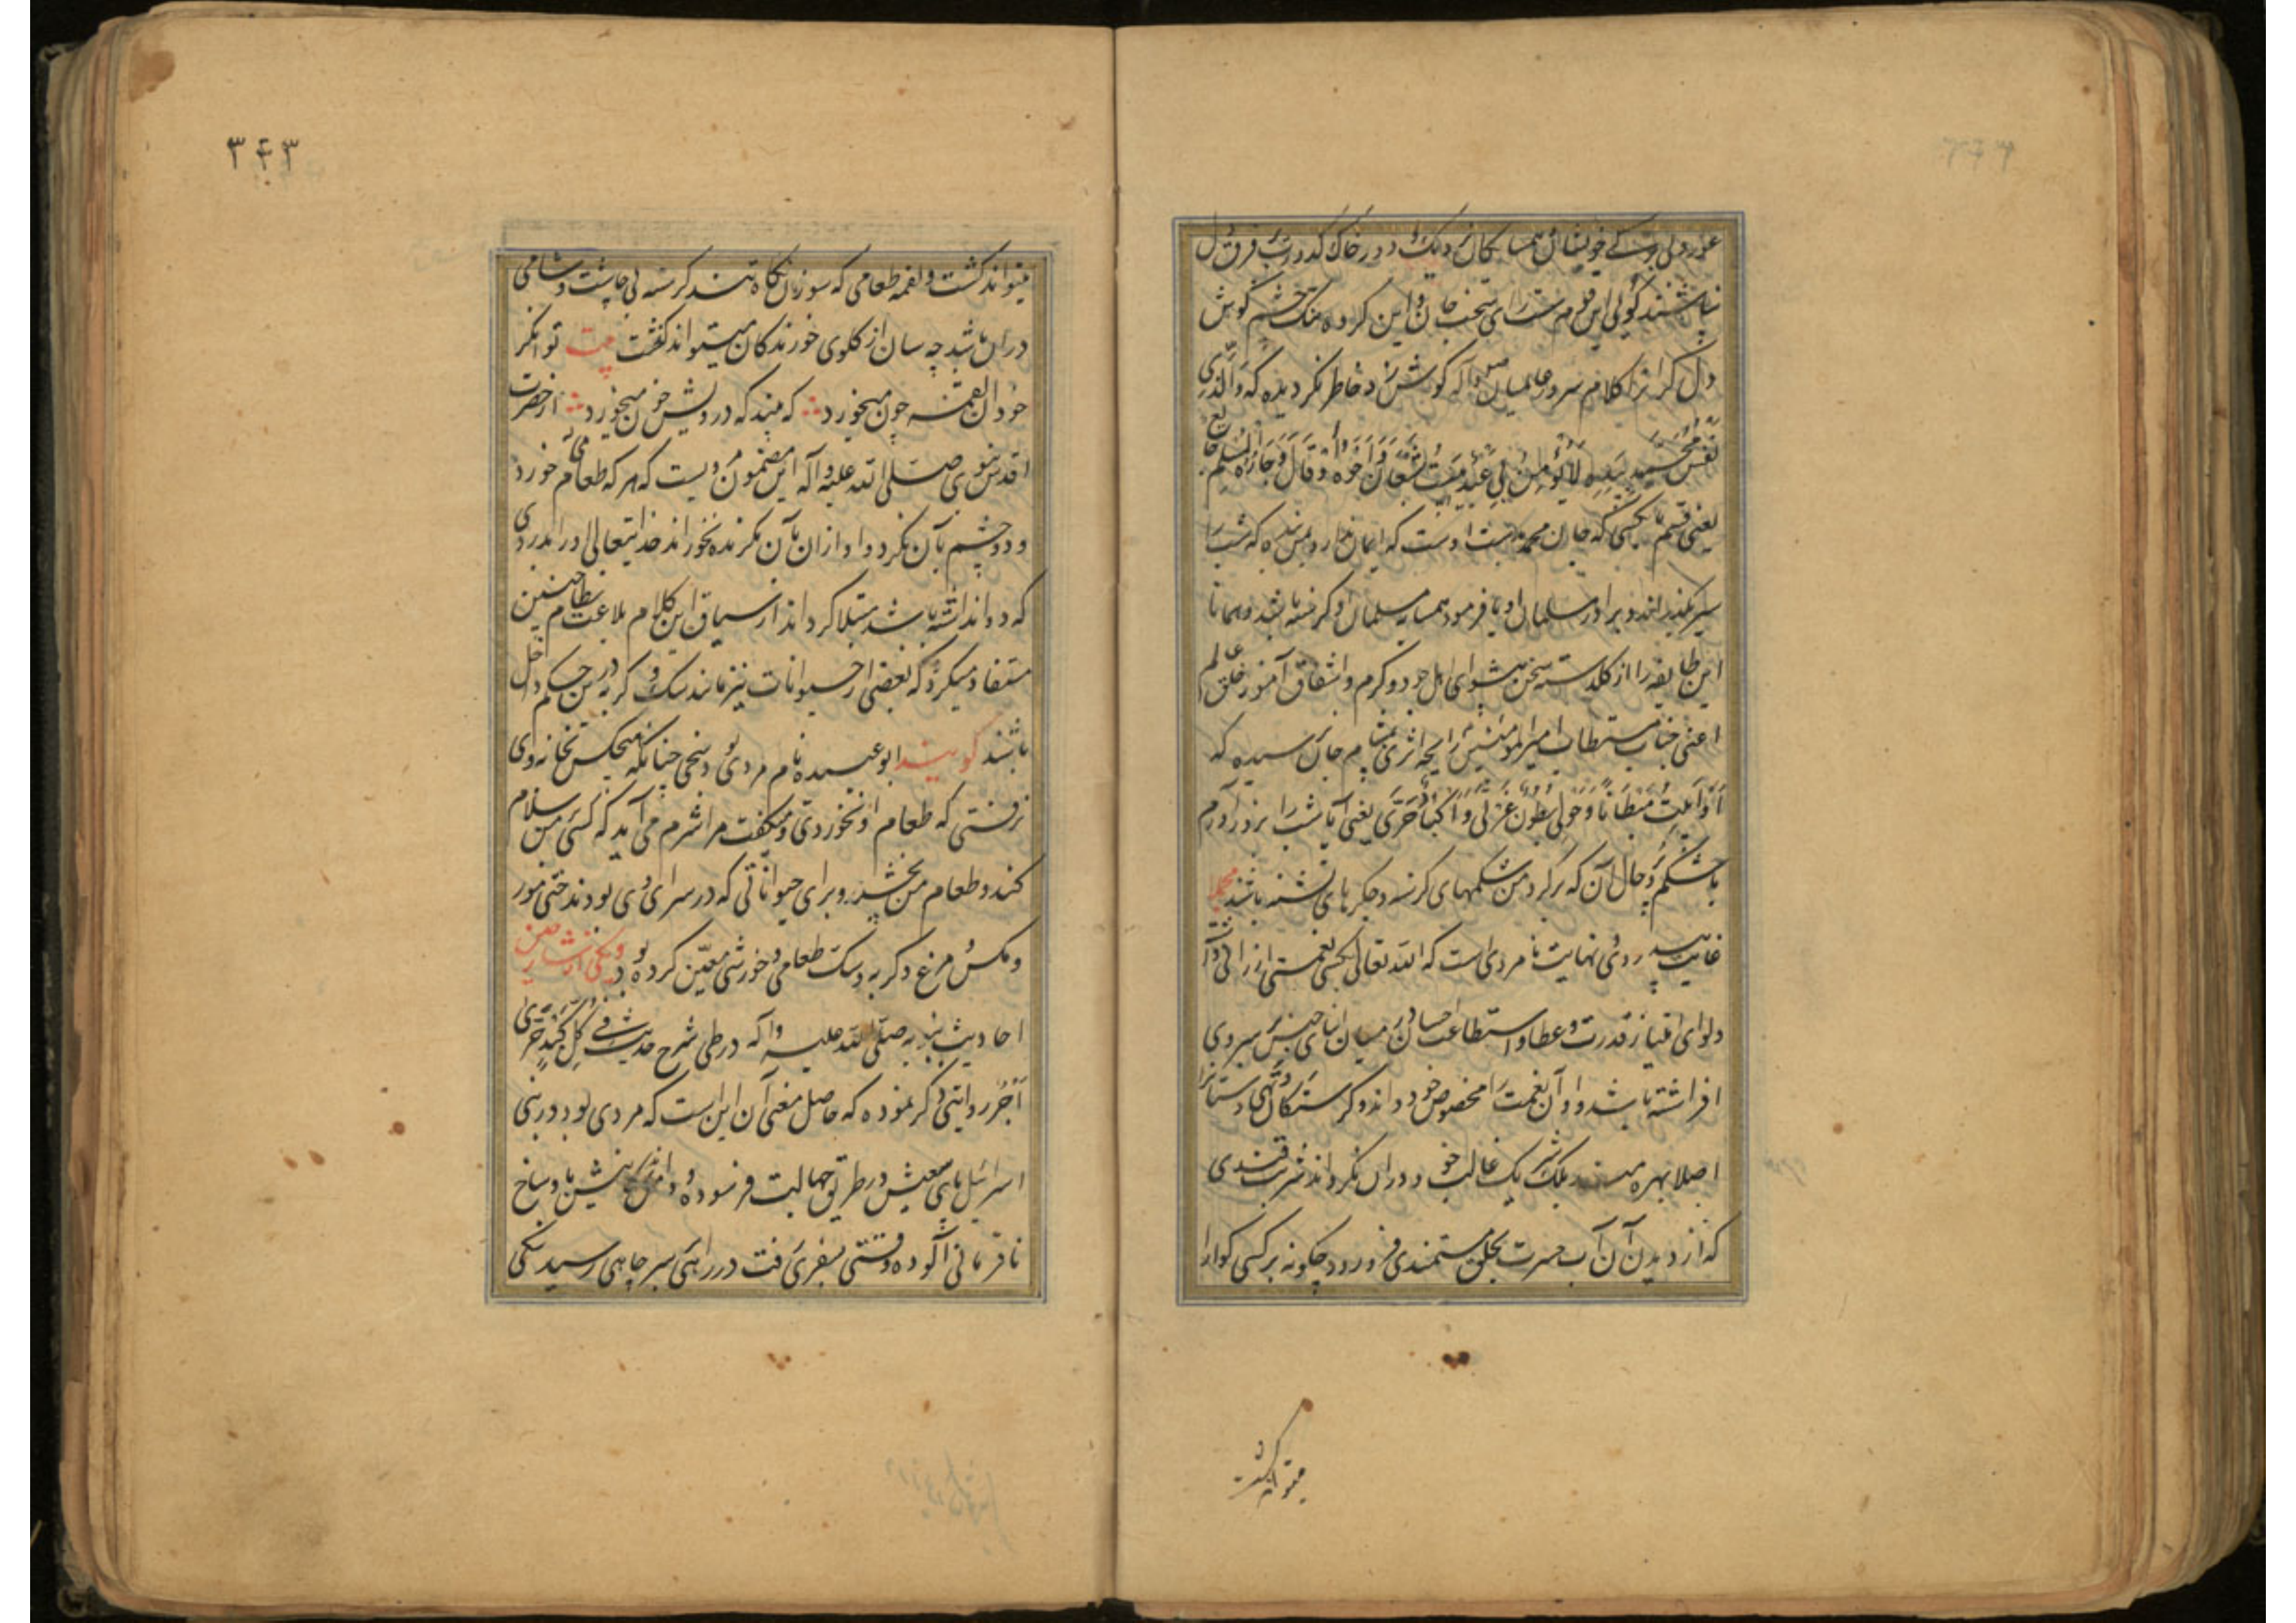 نپاشند گوئی این قوم
دل گران را کلام سرور عالمیان صلی و آله گوش زد خاطر نگردیده که والذی
نفس محمد بیده لا یؤمن بی عبد یبیت شبعان و اخوه او قال و جاره المسلم جایع
یعنی قسم بکسی که جان محمد بدست اوست که ایمان ندارد بمن بنده که شب را
سیر بگذراند و برادر مسلمان او یا فرمود همسایه مسلمان او گرسنه باشد و همانا
این طایفه را از گلدسته سخن پیشوای اهل جود و کرم و اشفاق آموز خلق عالم
اعنی جناب مستطاب امیرالمؤمنین رایحه اثری بمشام جان نرسیده که
أو أبیت مبطانا و حولی بطون غرثی و أکباد حرّی یعنی آیا شب را بروز آورم
با شکم پر و حال آن که برگرد من شکمهای گرسنه و جگرهای تشنه باشند مجملا
غایت بیدردی و نهایت نامردی است که الله تعالی بکسی نعمتی ارزانی دارد
ولوای امتیاز قدرت و عطا و استطاعت احسان در میان ابنای جنس سپر وی
افراشته باشد و او آن نعمت را مخصوص خود داند و گرسنگان و تهی دستانرا
اصلا بهره یک غالب خود در ان نگرداند شربت قندی
که از دیدن آن آب حسرت بحلق مستمندی فرو رود چگونه بر کسی گوارا
میتواند گشت
۳۴۳
میتواند گشت و لقمه طعامی که سوزن نگاه تند گرسنه بی چاشت و شامی
در ان باشد چه سان از گلوی خورندگان میتواند گذشت بیت توانگر
خود آن لقمه چون میخورد که بیند که درویش خون میخورد از حضرت
اقدس نبوی صلی الله علیه و آله این مضمون مرویست که هر که طعامی خورد
و دو چشم بآن نگرد و او از ان بآن نگرنده نخوراند خدایتعالی او را بدردی
که دوا نداشته باشد مبتلا گرداند از سیاق این کلام بلاغت نظام چنین
مستفاد میگردد که بعضی از حیوانات نیز مانند سگ و گربه درین حکم داخل
باشند گویند ابوعبیده نام مردی بود سخی چنانکه هیچکس بخانه وی
نرفتی که طعام او نخوردی و میگفت مرا شرم می آید که کسی بمن سلام
کند و طعام من نچشد و برای حیواناتی که در سرای وی بودند حتی مور
و مگس و مرغ و گربه و سگ طعامی و خورشی معین کرده بود و یکی از شارحین
احادیث نبویه صلی الله علیه و آله در طی شرح حدیث فی کل کبد حرّی
أجر روایتی ذکر نموده که حاصل معنی آن این است که مردی بود در بنی
اسرائیل پای سعیش در طریق جهالت فرسوده و دامن بینش باوساخ
نافرمانی آلوده وقتی بسفری رفت در راهی بسر چاهی رسید سگی